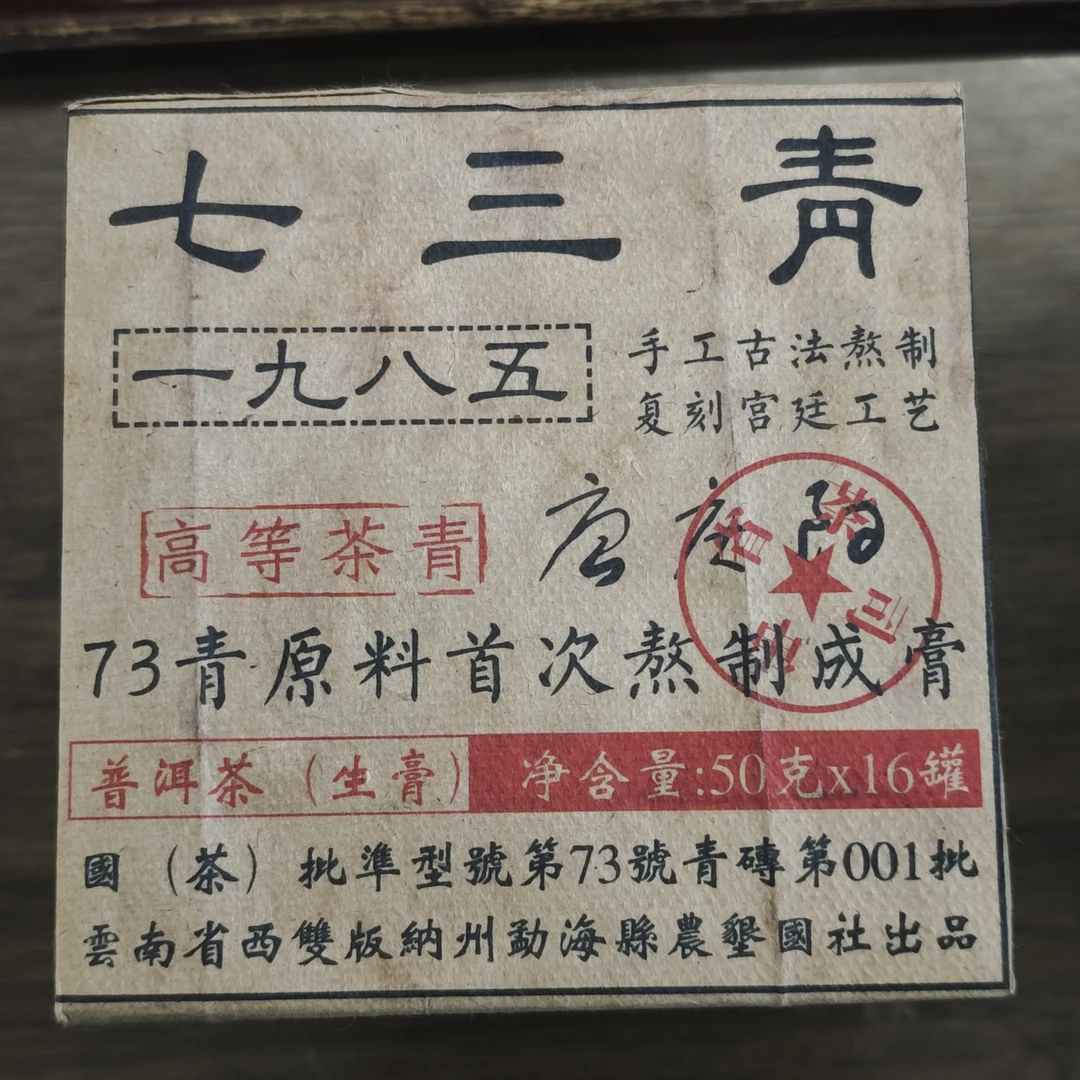 七三青
一九八五
手工古法熬制
复刻宫廷工艺
高等茶青
73青原料首次熬制成膏
普洱茶（生膏）
净含量:50克x16罐
國（茶）批準型號第73號青磚第001批
雲南省西雙版納州勐海縣農墾國社出品